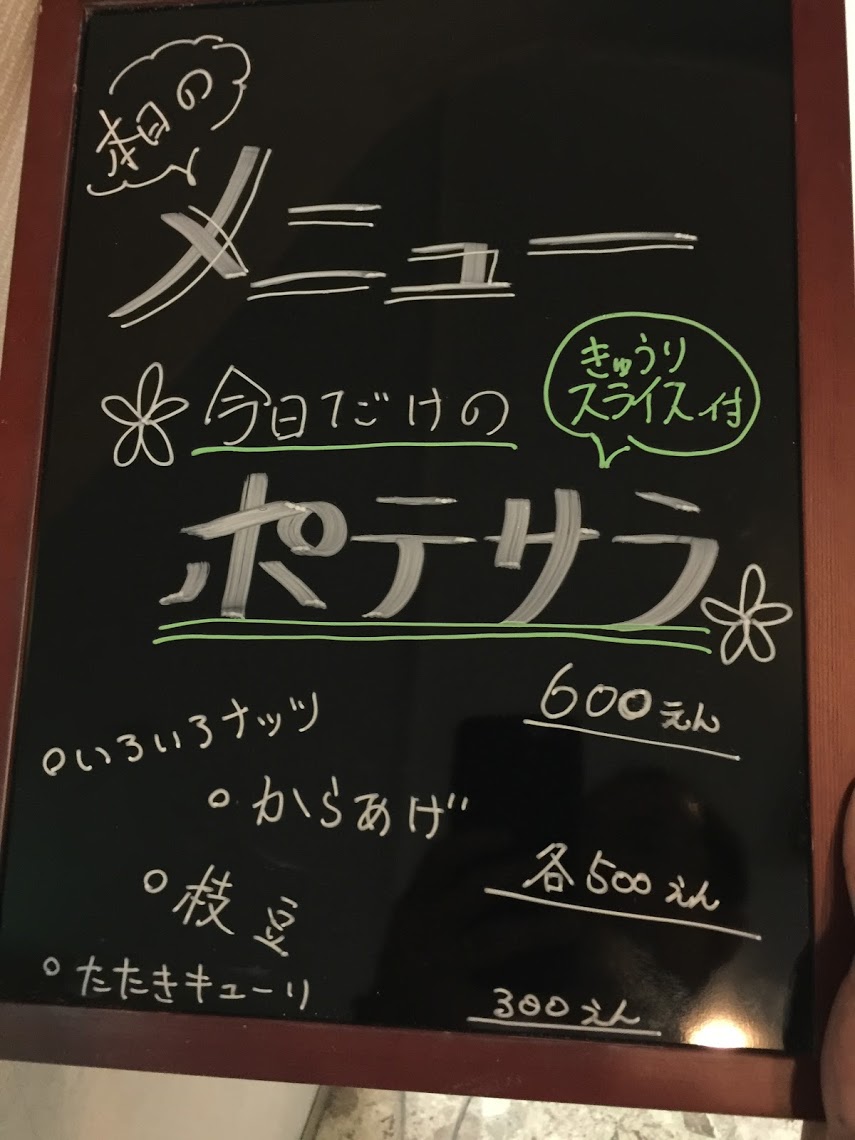 本日の
メニュー
今日だけの
きゅうり
スライス付
ポテサラ
600えん
○いろいろナッツ
○からあげ
各500えん
○枝豆
○たたきキューリ
300えん